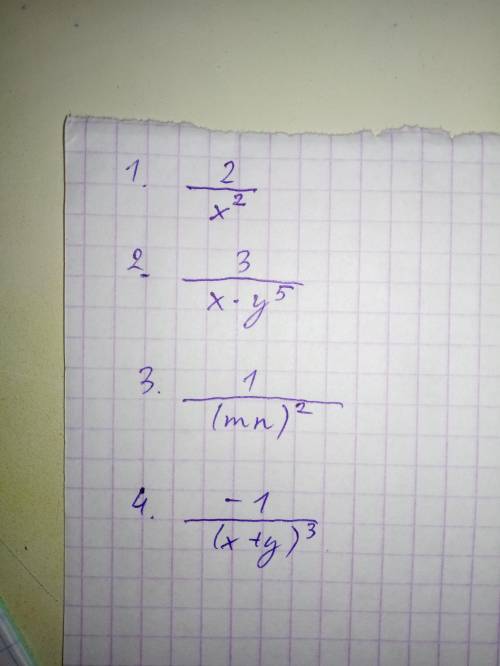 1. 2/x²
2. 3/(x · y⁵)
3. 1/(mn)²
4. -1/(x+y)³